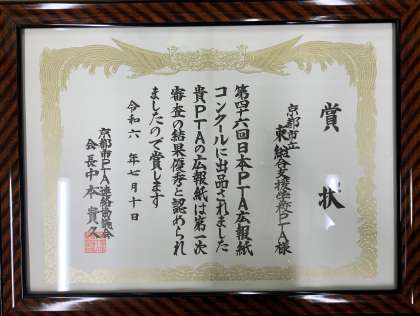 賞状
京都市立
東総合支援学校PTA様
第四十六回日本PTA広報紙
コンクールに出品されました
貴PTAの広報紙は第一次
審査の結果優秀と認められ
ましたので賞します
令和六年七月十日
京都市PTA連絡協議会
会長中本貴久